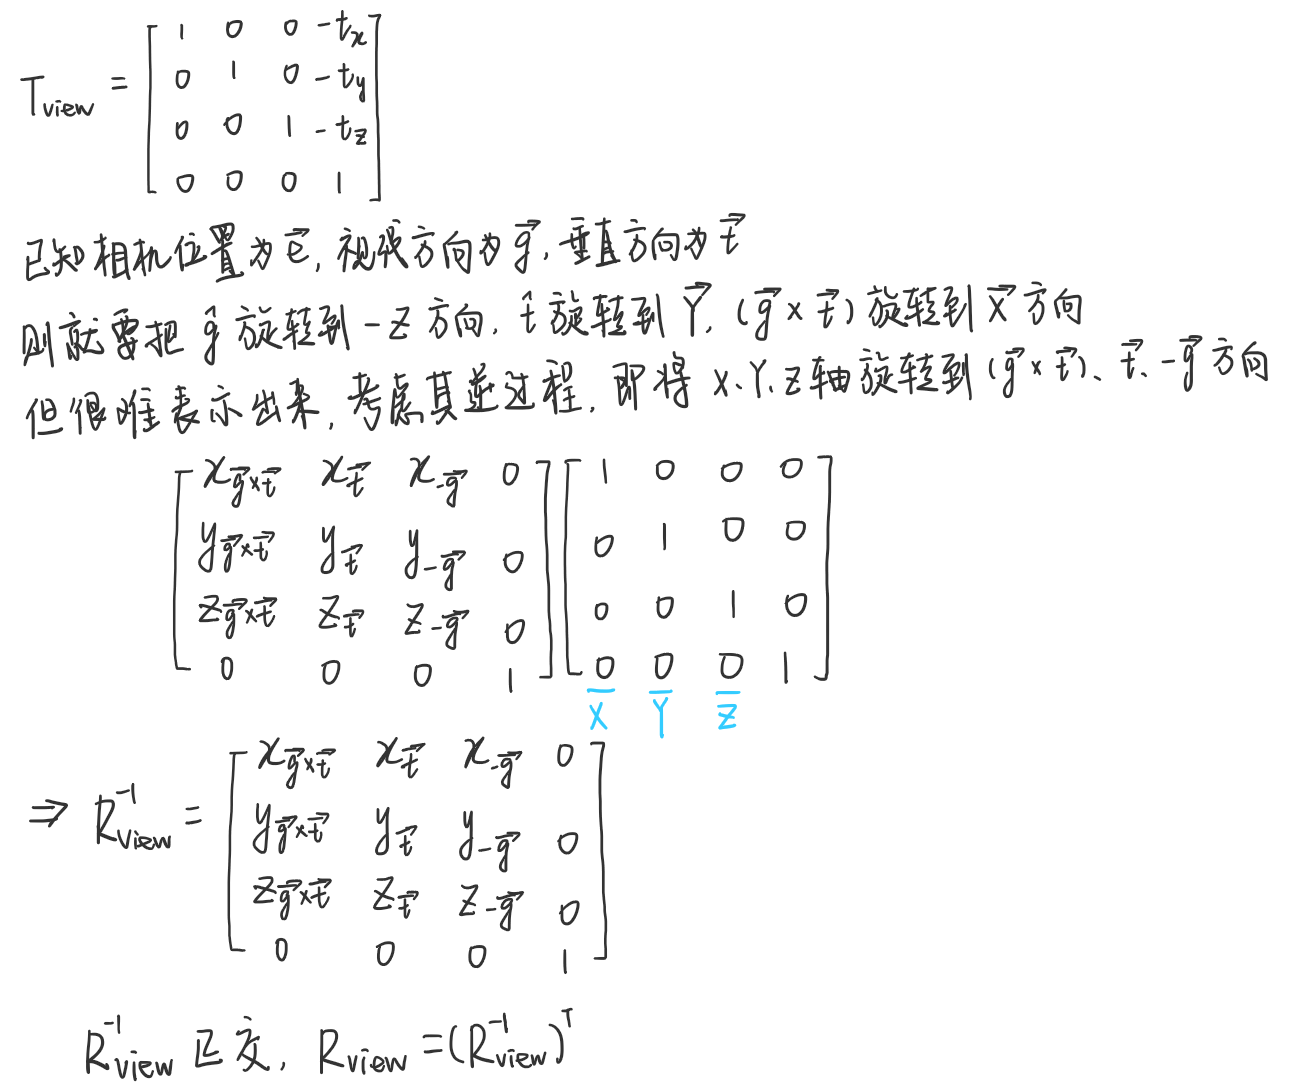 T_view = [ 1 0 0 -t_x
0 1 0 -t_y
0 0 1 -t_z
0 0 0 1 ]
已知相机位置为 e⃗, 视线方向为 g⃗, 垂直方向为 t⃗
则就要把 ĝ 旋转到 -Z 方向, t̂ 旋转到 Y⃗, (g⃗ × t⃗) 旋转到 X⃗ 方向
但很难表示出来, 考虑其逆过程, 即将 X、Y、Z 轴旋转到 (g⃗ × t⃗)、t⃗、-g⃗ 方向
[ x_{g⃗×t⃗} x_{t⃗} x_{-g⃗} 0 ] [ 1 0 0 0 ]
[ y_{g⃗×t⃗} y_{t⃗} y_{-g⃗} 0 ] [ 0 1 0 0 ]
[ z_{g⃗×t⃗} z_{t⃗} z_{-g⃗} 0 ] [ 0 0 1 0 ]
[ 0 0 0 1 ] [ 0 0 0 1 ]
X Y Z
⇒ R_view^{-1} = [ x_{g⃗×t⃗} x_{t⃗} x_{-g⃗} 0
y_{g⃗×t⃗} y_{t⃗} y_{-g⃗} 0
z_{g⃗×t⃗} z_{t⃗} z_{-g⃗} 0
0 0 0 1 ]
R_view^{-1} 正交, R_view = (R_view^{-1})^T